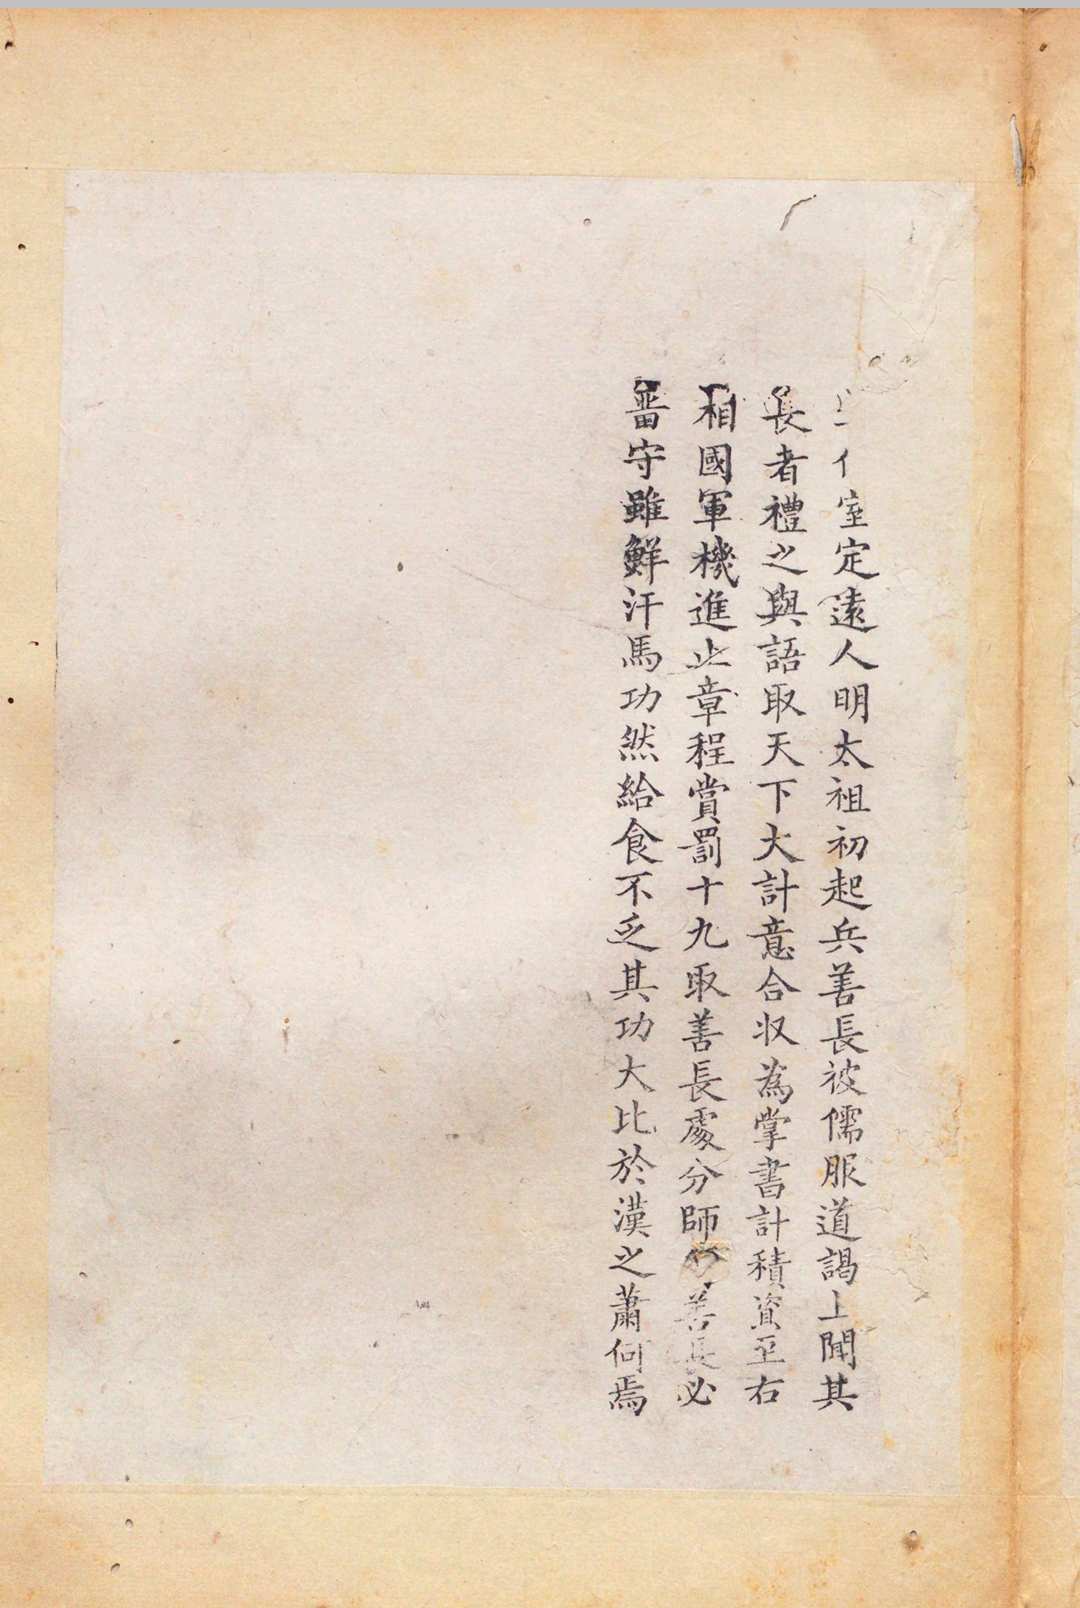 室定遠人明太祖初起兵善長被儒服道謁上聞其
長者禮之與語取天下大計意合収為掌書計積資至右
相國軍機進止章程賞罰十九取善長處分師行善長必
畱守雖鮮汗馬功然給食不乏其功大比於漢之蕭何焉